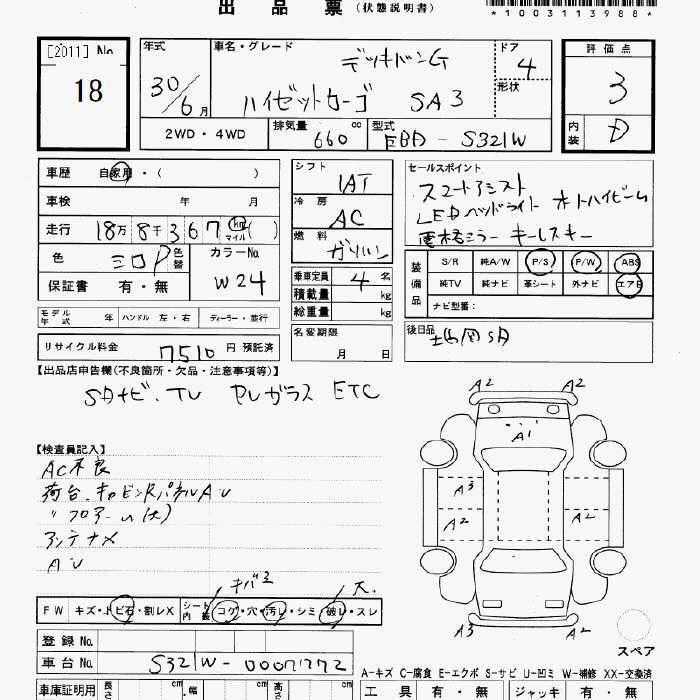 出 品 票 (状態説明書)
*1003113988*
[2011] No
18
年式
30/6月
車名・グレード
デッキバンG
ハイゼットカーゴ SA3
ドア
4
形状
評価点
3
内装
D
2WD・4WD
排気量 660 cc
型式 EBD-S321W
車歴 自家用・( )
車検 年 月
走行 18万8千367 km マイル( )
色 シロP 色替
カラーNo. W24
保証書 有・無
シフト
IAT
冷房
AC
燃料
ガソリン
乗車定員 4 名
積載量 kg
総重量 kg
セールスポイント
スマートアシスト
LEDヘッドライト オートハイビーム
電格ミラー キーレスキー
装備品
S/R 純A/W P/S P/W ABS
純TV 純ナビ 革シート 外ナビ エアB
ナビ型番:
モデル年式 年 ハンドル 左・右 ディーラー・並行
名変期限
月 日
後日品
リサイクル料金 7510 円 預託済
【出品店申告欄(不良箇所・欠品・注意事項等)】
SDナビ.TV PVガラス ETC
【検査員記入】
AC不良
荷台.キャビンRパネルAU
〃フロアーU(大)
アンテナX
AU
A2 A2
A1
A3
A2 A2
A3 A2
キバミ 大
FW キズ・トビ石・割レX シート内装 コゲ・穴・汚レ・シミ・破レ・スレ
スペア
登録 No.
車台 No. S321W-
A-キズ C-腐食 E-エクボ S-サビ U-凹ミ W-補修 XX-交換済
車庫証明用 長さ cm 幅 cm 高さ cm
工具 有・無 ジャッキ 有・無